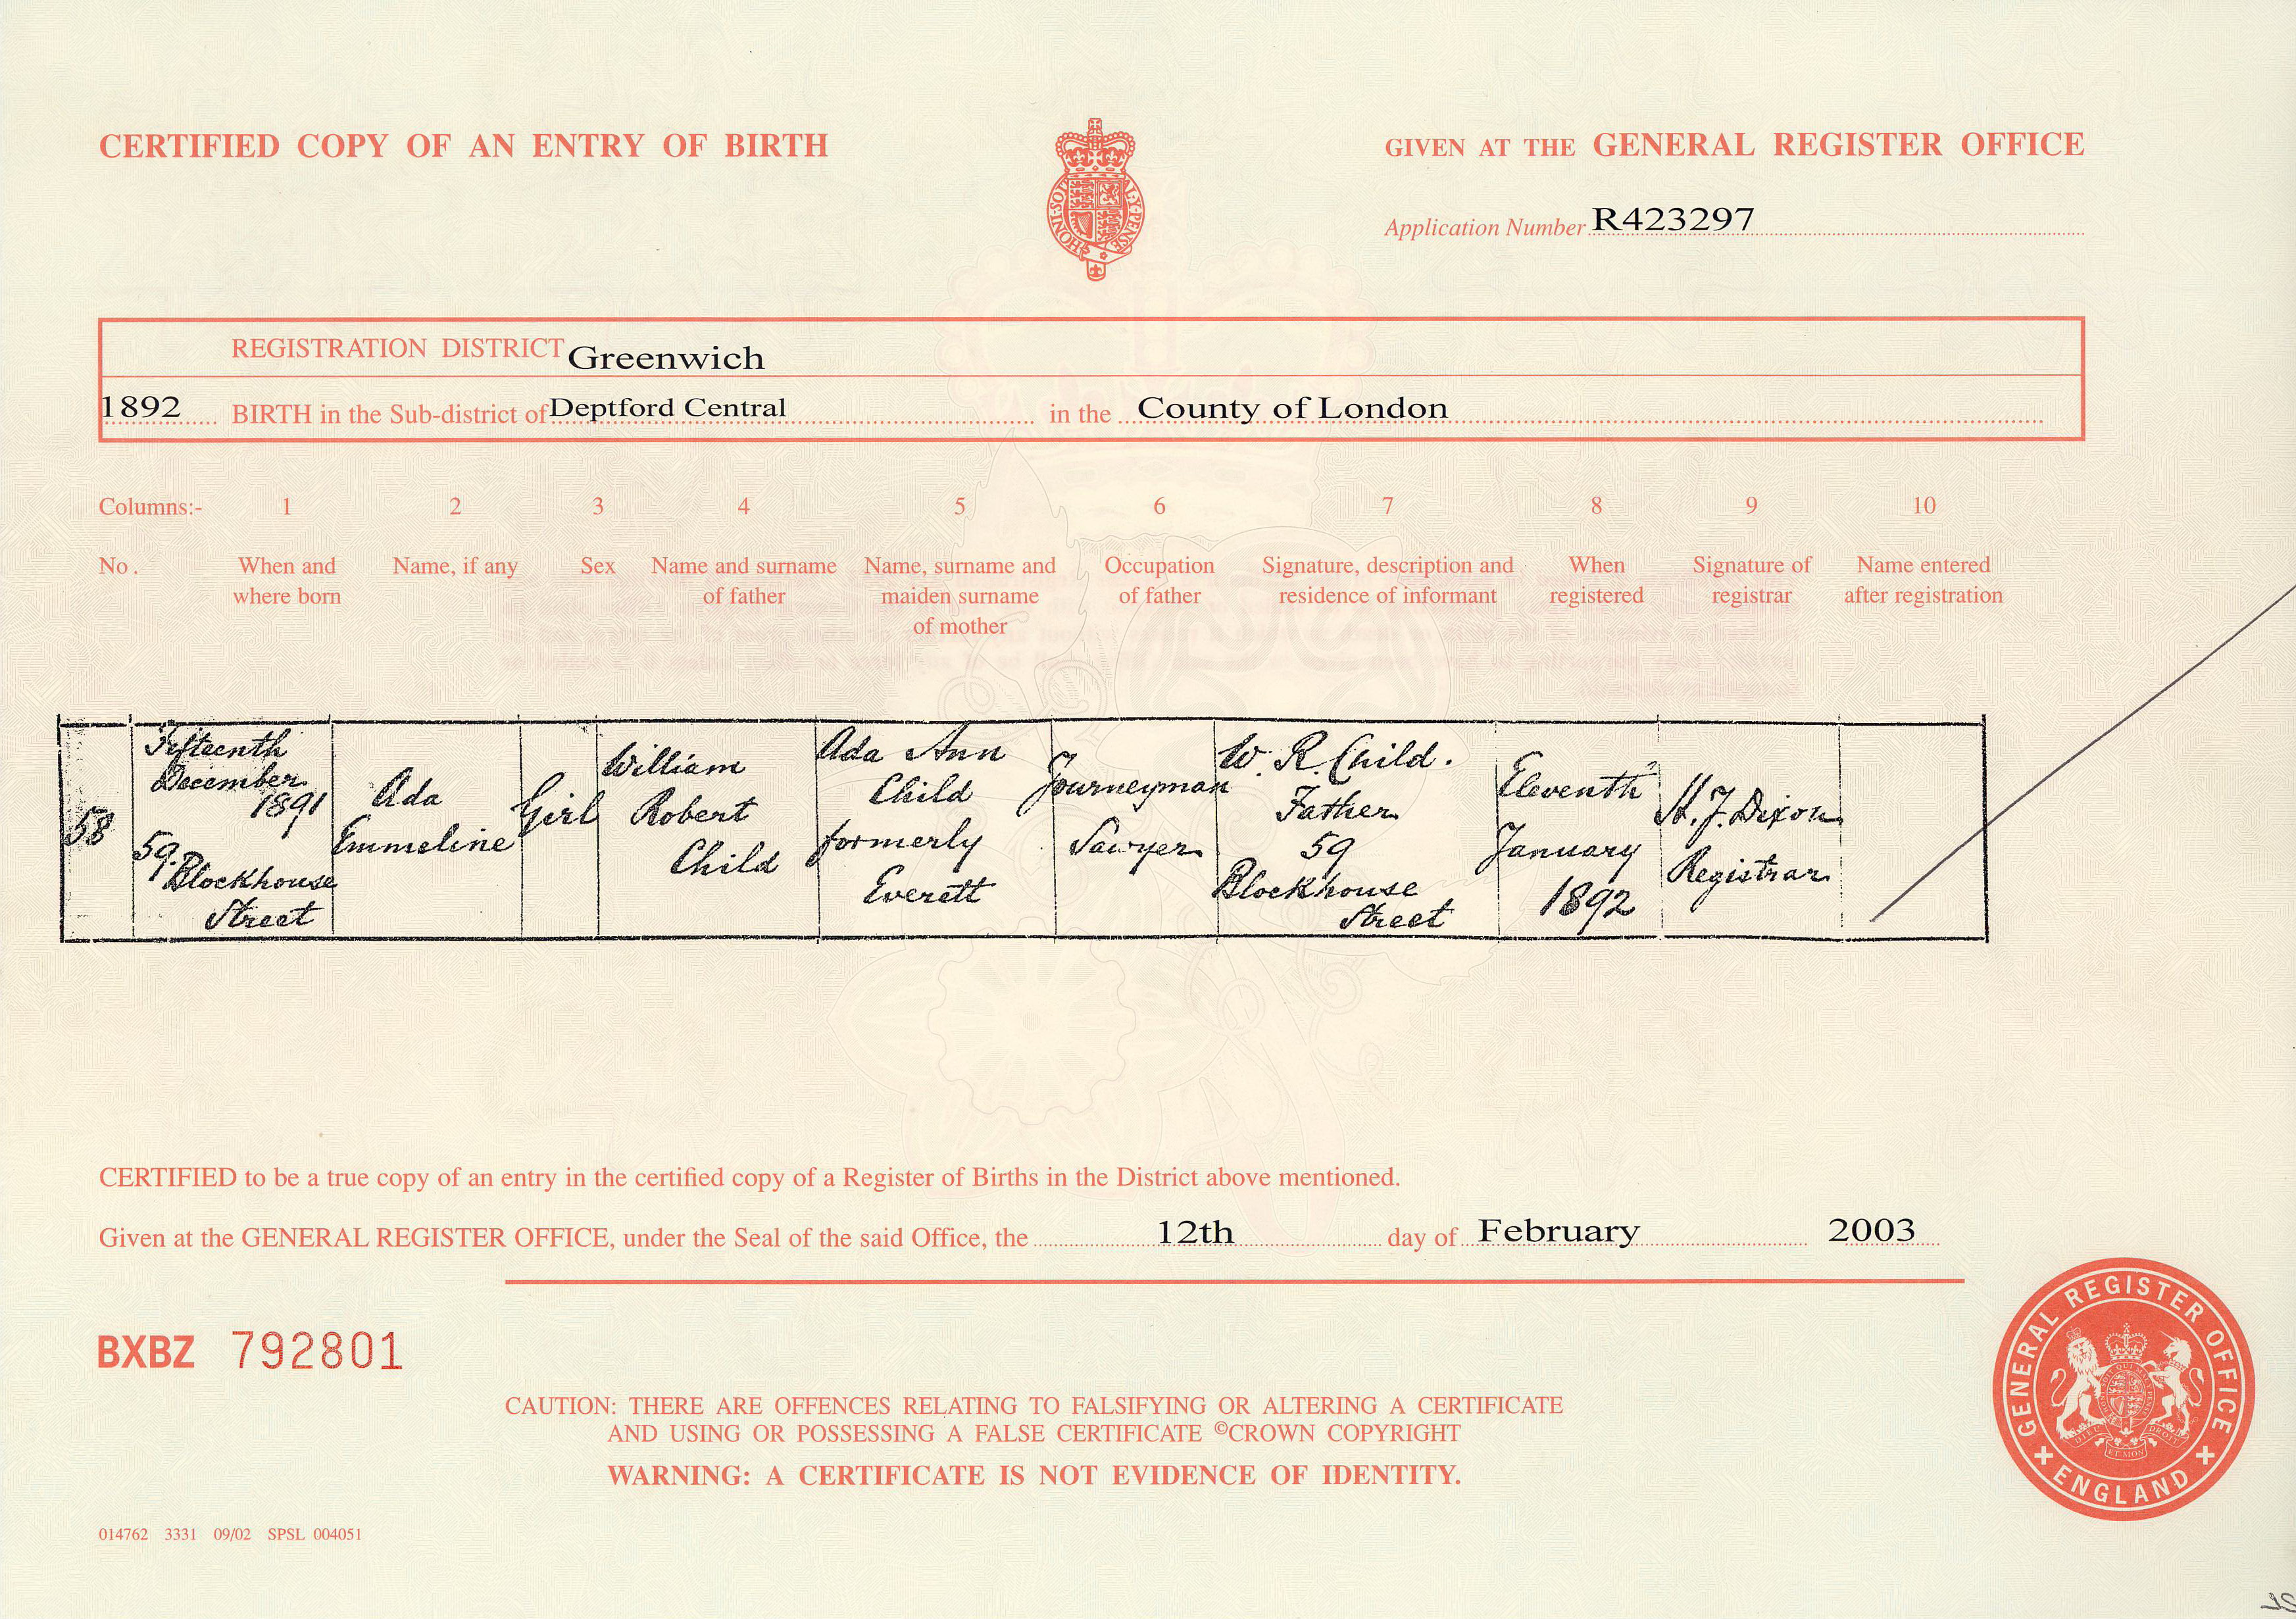 CERTIFIED COPY OF AN ENTRY OF BIRTH
GIVEN AT THE GENERAL REGISTER OFFICE
HONI·SOIT
MAL·Y·PENSE
Application Number R423297
REGISTRATION DISTRICT Greenwich
1892 BIRTH in the Sub-district of Deptford Central in the County of London
Columns:- 1 2 3 4 5 6 7 8 9 10
No. When and where born
Name, if any
Sex
Name and surname of father
Name, surname and maiden surname of mother
Occupation of father
Signature, description and residence of informant
When registered
Signature of registrar
Name entered after registration
58
Fifteenth
December
1891
59.
Blockhouse
Street
Ada
Emmeline
Girl
William
Robert
Child
Ada Ann
Child
formerly
Everett
Journeyman
Sawyer
W. R. Child.
Father
59
Blockhouse
Street
Eleventh
January
1892
H. J. Dixon
Registrar
CERTIFIED to be a true copy of an entry in the certified copy of a Register of Births in the District above mentioned.
Given at the GENERAL REGISTER OFFICE, under the Seal of the said Office, the 12th day of February 2003
BXBZ 792801
CAUTION: THERE ARE OFFENCES RELATING TO FALSIFYING OR ALTERING A CERTIFICATE
AND USING OR POSSESSING A FALSE CERTIFICATE ©CROWN COPYRIGHT
WARNING: A CERTIFICATE IS NOT EVIDENCE OF IDENTITY.
GENERAL REGISTER OFFICE
ENGLAND
DIEU ET MON DROIT
014762 3331 09/02 SPSL 004051